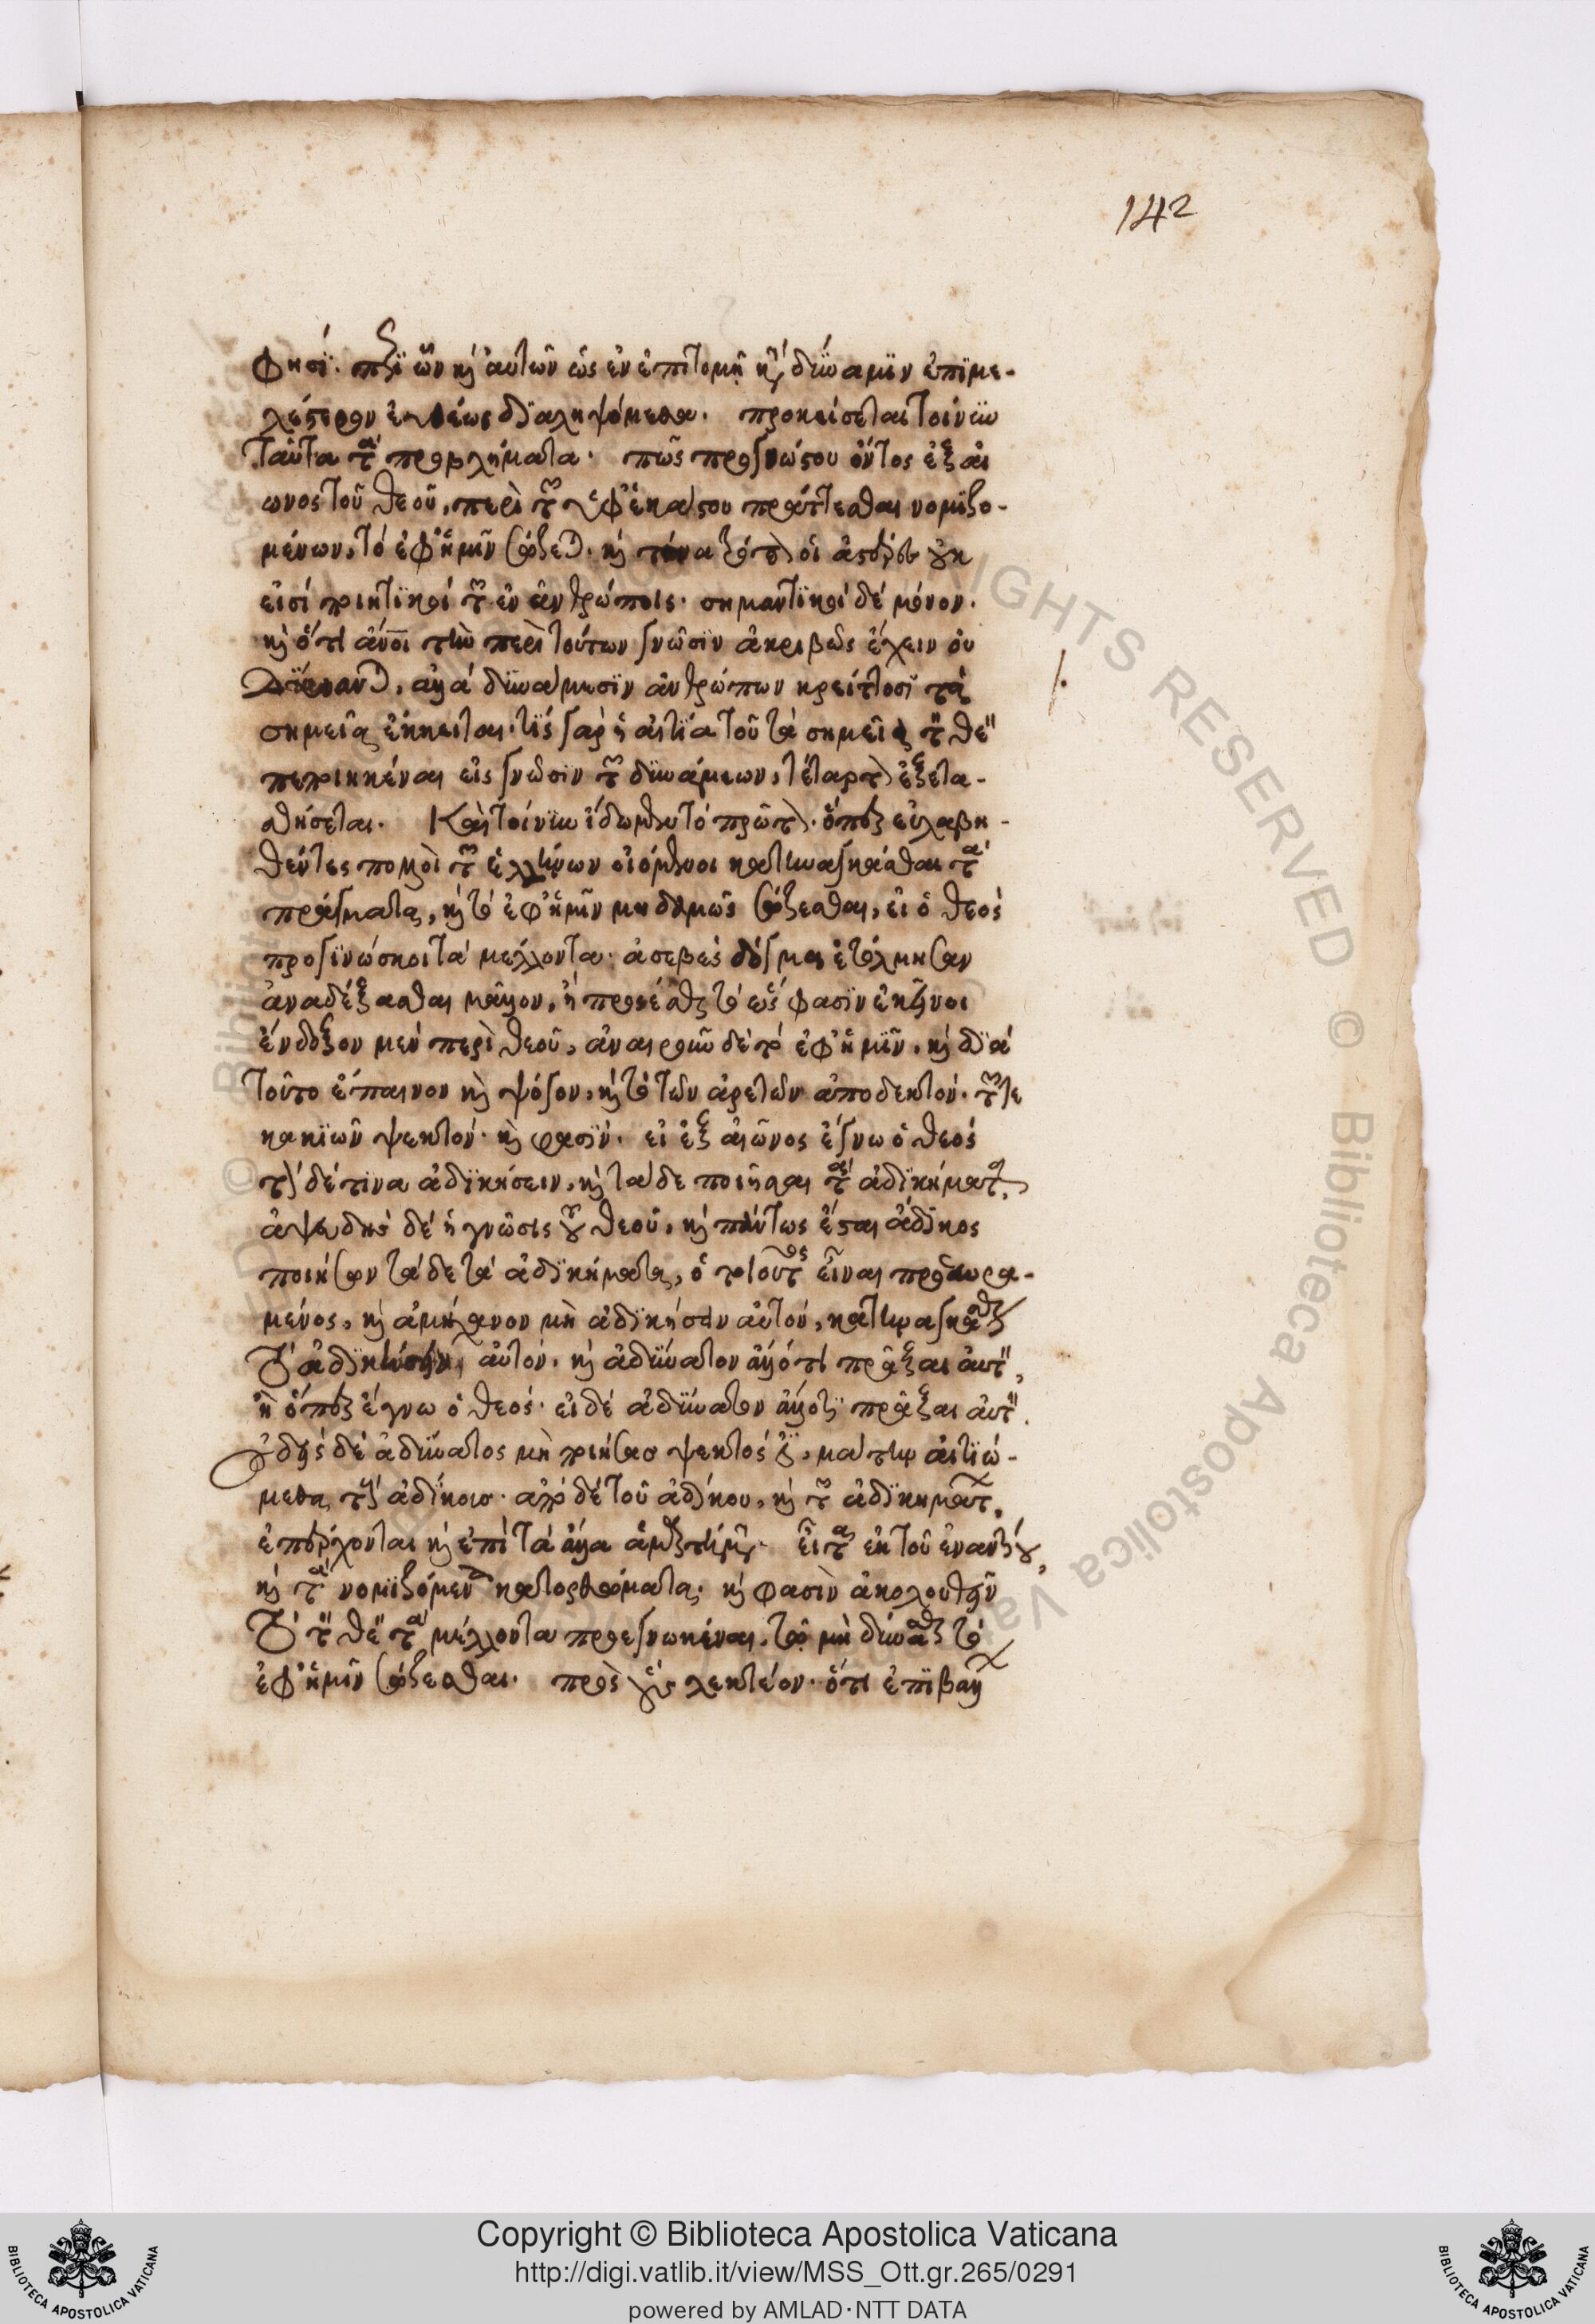 142
φησί. περὶ ὧν καὶ αὐτῶν ὡς ἐν ἐπιτομῇ κατὰ δύναμιν ἐπιμε-
λέστερον εὐθέως διαληψόμεθα. προκείσεται τοίνυν
ταῦτα τὰ προβλήματα. πῶς προγνώστου ὄντος ἐξ αἰ
ῶνος τοῦ θεοῦ, περὶ τῶν ὑφ' ἑκάστου πράττεσθαι νομιζο-
μένων, τὸ ἐφ' ἡμῖν σώζεται. καὶ τίνα τρόπον οἱ ἀστέρες οὐκ
εἰσὶ ποιητικοὶ τῶν ἐν ἀνθρώποις. σημαντικοὶ δὲ μόνον.
καὶ ὅτι ἄνοι τὴν περὶ τούτων γνῶσιν ἀκριβῶς ἔχειν οὐ
δύνανται, ἀλλὰ δυνάμεσιν ἀνθρώπων κρείττοσι τὰ
σημεῖα ἔκκειται. τίς γὰρ ἡ αἰτία τοῦ τὰ σημεῖα τὸν θεὸν
πεποιηκέναι εἰς γνῶσιν τῶν δυνάμεων, τέταρτον ἐξετα-
σθήσεται. Καὶ τοίνυν ἴδωμεν τὸ πρῶτον. ὅπερ εὐλαβη-
θέντες πολλοὶ τῶν ἑλλήνων οἰόμενοι κατηναγκάσθαι τὰ
πράγματα, καὶ τὸ ἐφ' ἡμῖν μηδαμῶς σώζεσθαι, εἰ ὁ θεὸς
προγινώσκοι τὰ μέλλοντα. ἀσεβὲς δόγμα ἐτόλμησαν
ἀναδέξασθαι μᾶλλον, ἢ προσέσθαι τὸ ὥς φασιν ἐκεῖνοι
ἔνδοξον μὲν περὶ θεοῦ, ἀναιροῦν δὲ τὸ ἐφ' ἡμῖν, καὶ διὰ
τοῦτο ἔπαινον καὶ ψόγον, καὶ τὸ τῶν ἀρετῶν ἀποδεκτόν. τῶν τε
κακιῶν ψεκτόν. καὶ φασίν. εἰ ἐξ αἰῶνος ἔγνω ὁ θεὸς
τόνδέ τινα ἀδικήσειν, καὶ τάδε ποιῆσαι τὰ ἀδικήματα.
ἀψευδὴς δὲ ἡ γνῶσις τοῦ θεοῦ, καὶ πάντως ἔσται ἄδικος
ποιήσων τάδε τὰ ἀδικήματα, ὁ τοιοῦτος εἶναι προεωρα-
μένος, καὶ ἀμήχανον μὴ ἀδικήσειν αὐτόν, κατηναγκασται
τὸ ἀδικήσειν αὐτόν. καὶ ἀδύνατον ἄλλό τι πρᾶξαι αὐτὸν,
ἢ ὅπερ ἔγνω ὁ θεός. εἰ δὲ ἀδύνατον ἄλλό τι πρᾶξαι αὐτὸν.
οὐδεὶς δὲ ἀδύνατος μὴ ποιήσας ψεκτός ἐστι, μάτην αἰτιώ-
μεθα τοὺς ἀδίκους. ἀπὸ δὲ τοῦ ἀδίκου, καὶ τῶν ἀδικημάτων,
ἐπέρχονται καὶ ἐπὶ τὰ ἄλλα ἁμαρτήματα. εἶτα ἐκ τοῦ ἐναντίου,
καὶ τὰ νομιζόμενα κατορθώματα. καὶ φασὶν ἀκολουθεῖν
τὸ τὸν θεὸν τὰ μέλλοντα προεγνωκέναι, τῷ μὴ δύνασθαι τὸ
ἐφ' ἡμῖν σώζεσθαι. πρὸς οὓς λεκτέον. ὅτι ἐπιβάλλων
Copyright © Biblioteca Apostolica Vaticana
http://digi.vatlib.it/view/MSS_Ott.gr.265/0291
powered by AMLAD·NTT DATA
BIBLIOTECA APOSTOLICA VATICANA
BIBLIOTECA APOSTOLICA VATICANA